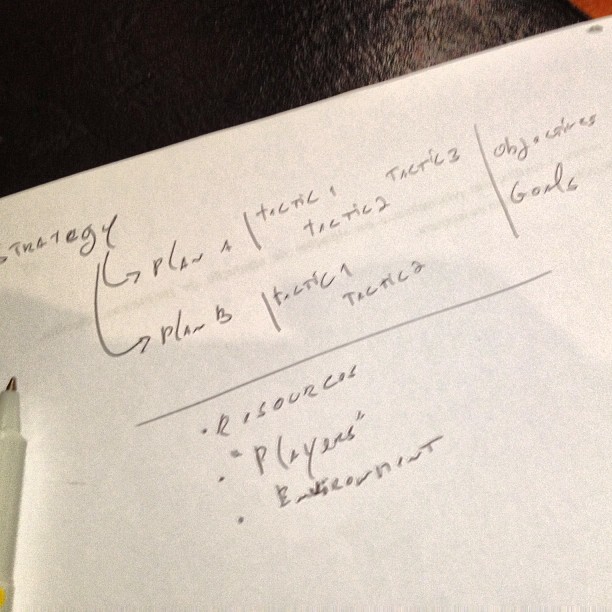 STRATEgy
PlAN A tActic 1 TActic 3 Objectives
tActic 2 GOAls
PlAN B tActic 1
TActic 2
• RESOURCES
• "PlAyERS"
• ENVIRONMENT